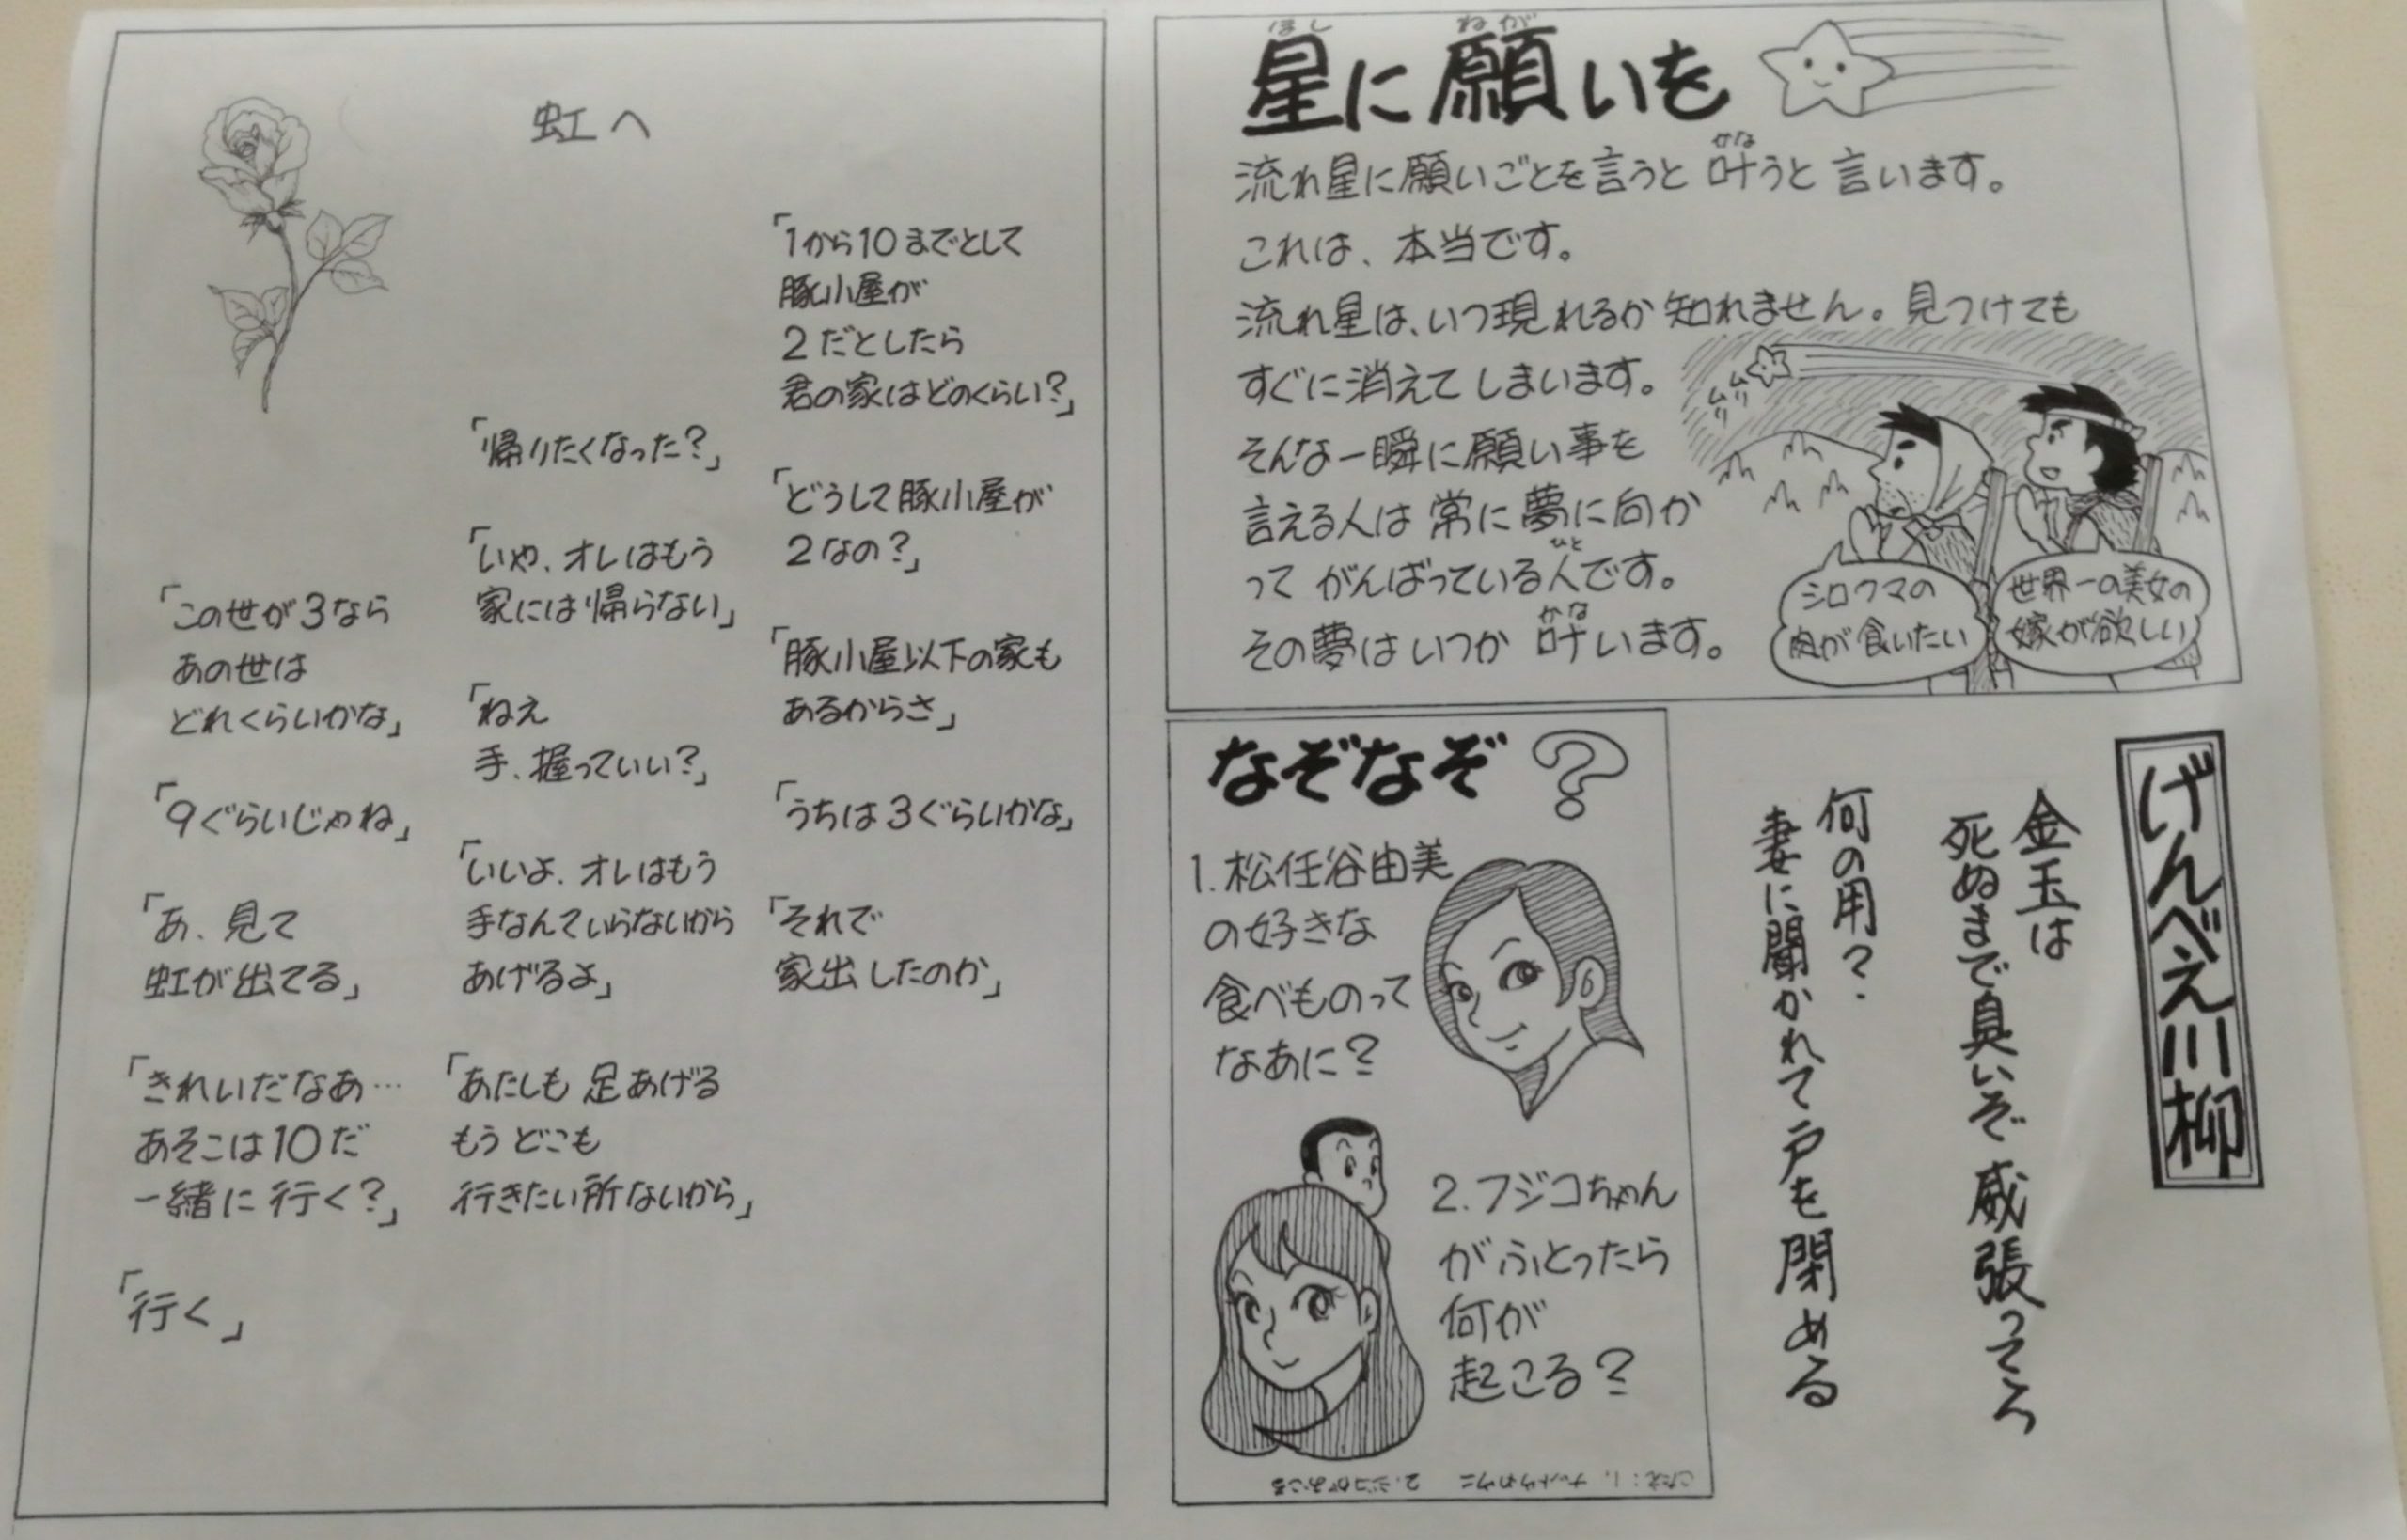 星に願いを
ほし
ねが
流れ星に願いごとを言うと叶うと言います。
かな
これは、本当です。
流れ星は、いつ現れるか知れません。見つけても
すぐに消えてしまいます。
そんな一瞬に願い事を
言える人は常に夢に向か
ってがんばっている人です。
ひと
その夢はいつか叶います。
かな
ムリムリ
世界一の美女の
嫁が欲しい
シロクマの
肉が食いたい
げんべえ川柳
金玉は
死ぬまで臭いぞ威張ってろ
何の用?
妻に聞かれて戸を閉める
なぞなぞ?
1.松任谷由美
の好きな
食べものって
なあに?
2.フジコちゃん
がふとったら
何が
起こる?
こたえ:1.ナットウやウニ 2.ジコがおこる
虹へ
「1から10までとして
豚小屋が
2だとしたら
君の家はどのくらい?」
「どうして豚小屋が
2なの?」
「豚小屋以下の家も
あるからさ」
「うちは3ぐらいかな」
「それで
家出したのか」
「帰りたくなった?」
「いや、オレはもう
家には帰らない」
「ねえ
手、握っていい?」
「いいよ、オレはもう
手なんていらないから
あげるよ」
「あたしも足あげる
もうどこも
行きたい所ないから」
「この世が3なら
あの世は
どれくらいかな」
「9ぐらいじゃね」
「あ、見て
虹が出てる」
「きれいだなあ…
あそこは10だ
一緒に行く?」
「行く」